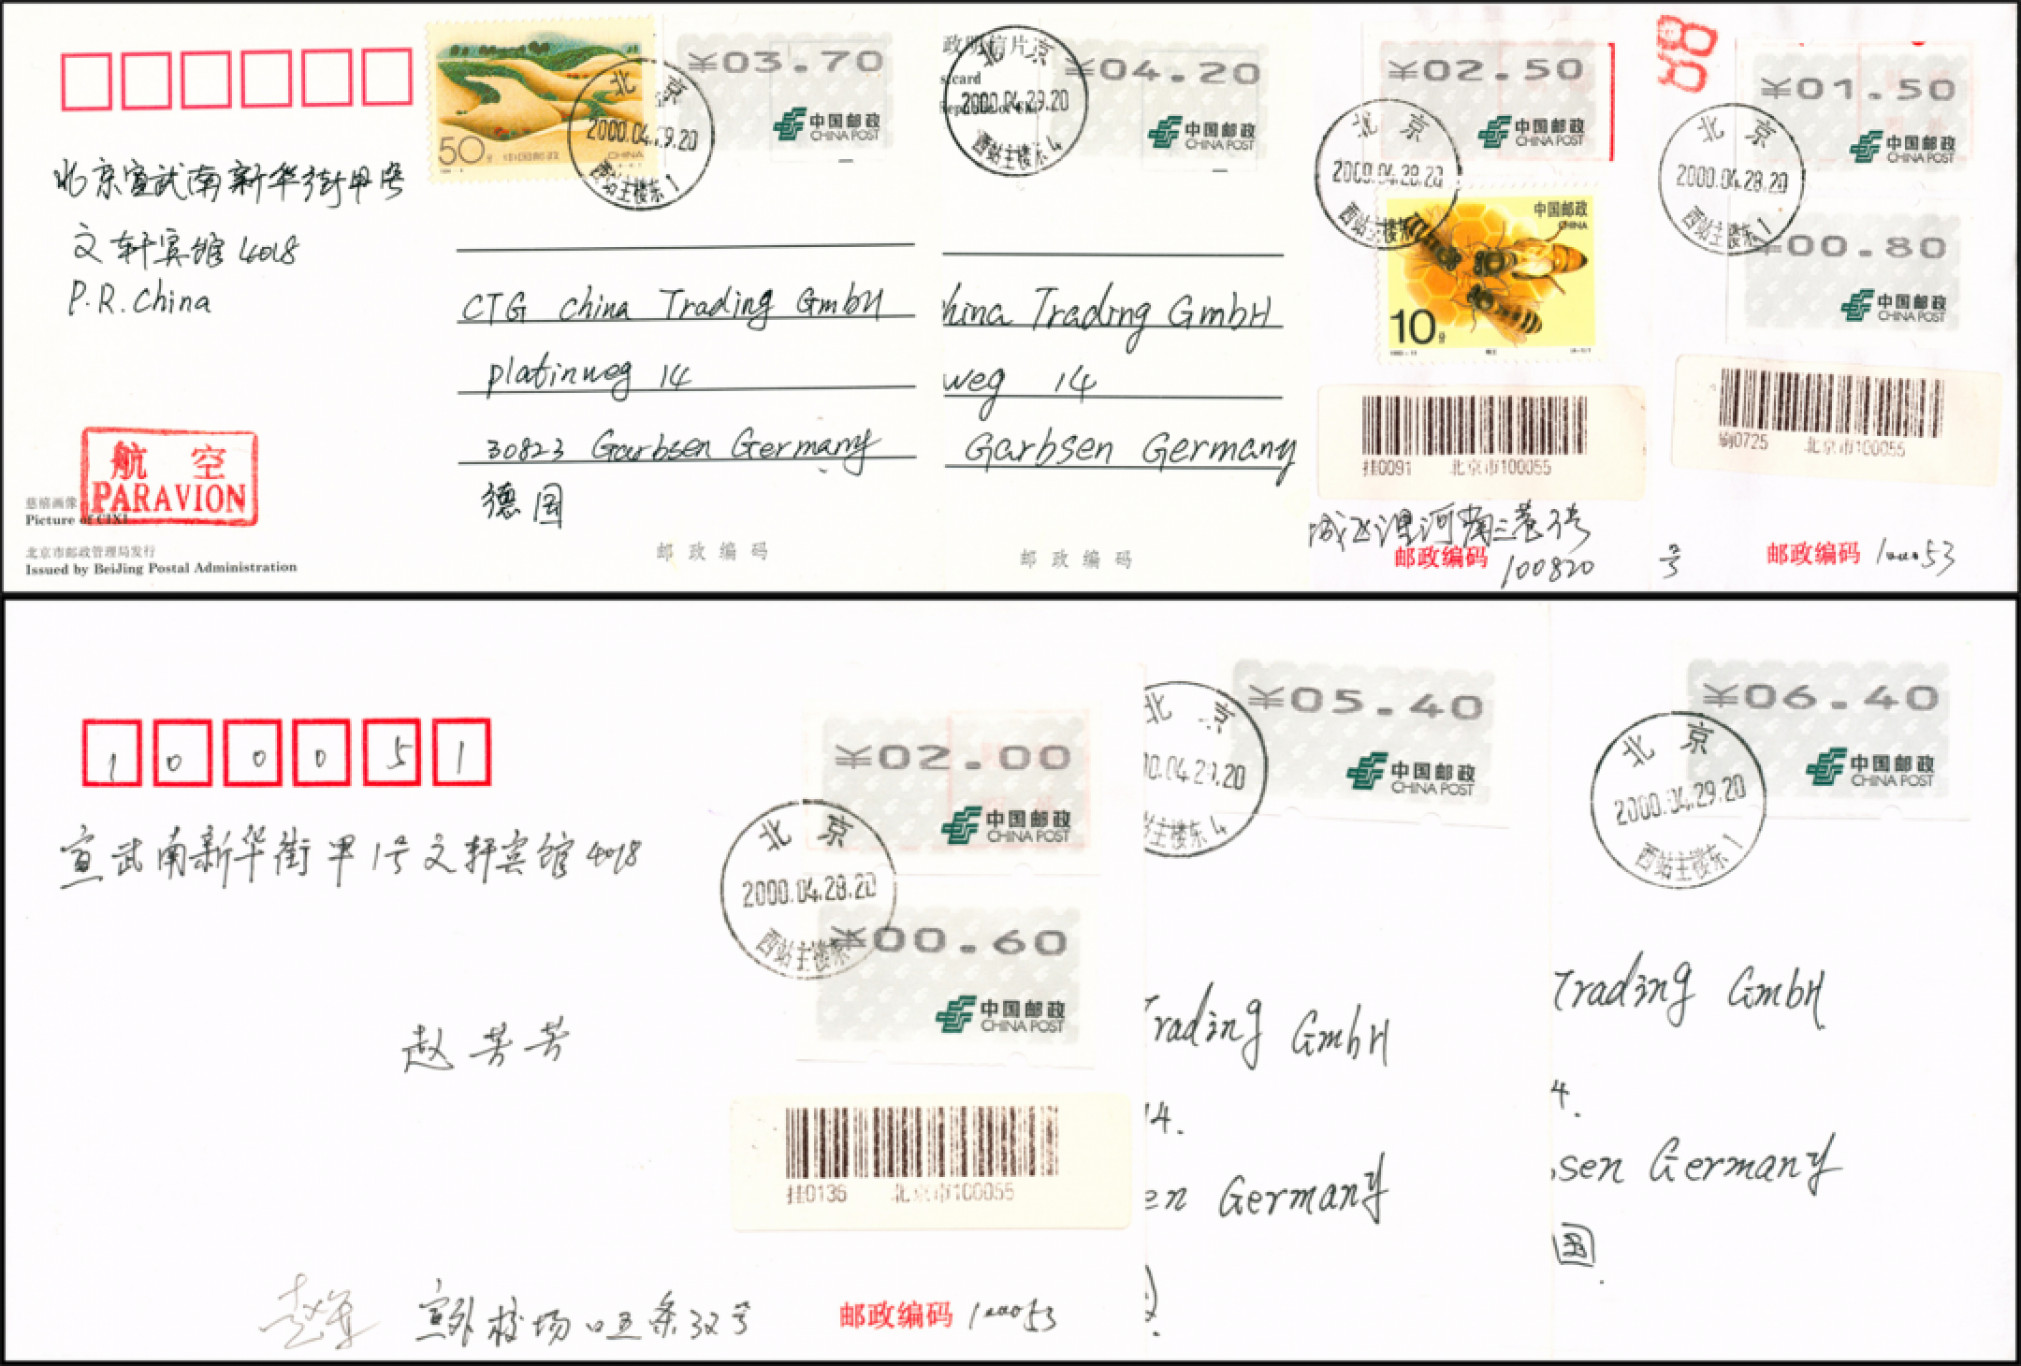 ¥03.70
中国邮政
CHINA POST
50分
CHINA
北京
2000.04.29.20
西站主楼东1
北京宣武南新华街甲1号
文轩宾馆4018
P.R.China
CTG China Trading GmbH
Platinweg 14
30823 Garbsen Germany
德国
航空
PARAVION
慈禧画像
Picture of CIXI
北京市邮政管理局发行
Issued by BeiJing Postal Administration
邮政编码
政明信片
stcard
¥04.20
中国邮政
CHINA POST
北京
2000.04.29.20
西站主楼东4
hina Trading GmbH
weg 14
Garbsen Germany
邮政编码
¥02.50
中国邮政
CHINA POST
北京
2000.04.28.20
西站主楼东
中国邮政
CHINA
10分
挂0091 北京市100055
河南三巷3号
邮政编码 100820
¥01.50
中国邮政
CHINA POST
北京
2000.04.28.20
西站主楼东1
¥00.80
中国邮政
CHINA POST
0725 北京市100055
号
邮政编码 100053
100051
宣武南新华街甲1号文轩宾馆4018
赵芳芳
¥02.00
中国邮政
CHINA POST
北京
2000.04.28.20
西站主楼东
¥00.60
中国邮政
CHINA POST
挂0136 北京市100055
宣外校场口五条32号
邮政编码 100053
¥05.40
中国邮政
CHINA POST
北京
00.04.29.20
主楼东4
Trading GmbH
14.
en Germany
¥06.40
中国邮政
CHINA POST
北京
2000.04.29.20
西站主楼东1
Trading GmbH
4.
sen Germany
国.